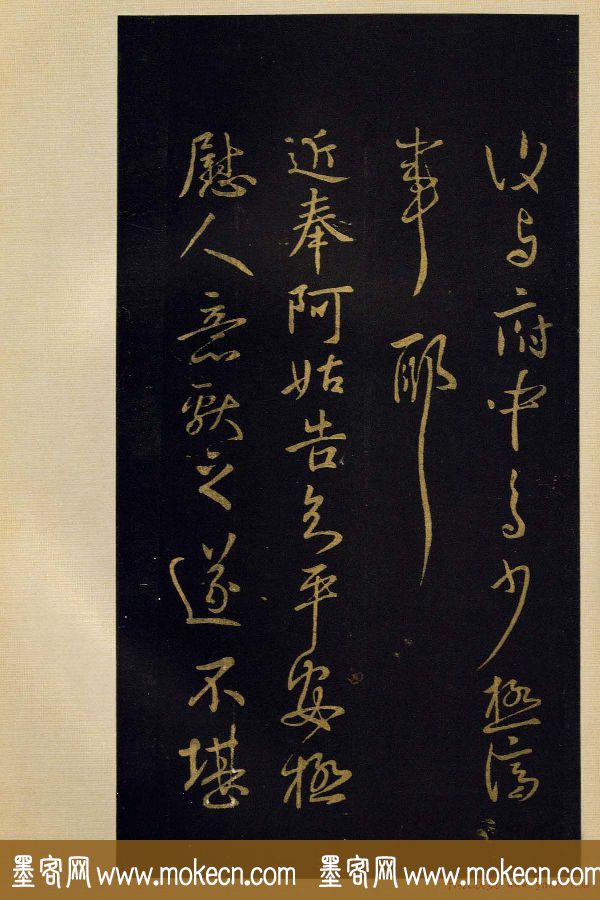 府中少極濟
事耶
近奉阿姑告知平安極
慰人意獻之遂不堪
墨客网 www.mokecn.com 墨客网 www.mokecn.com